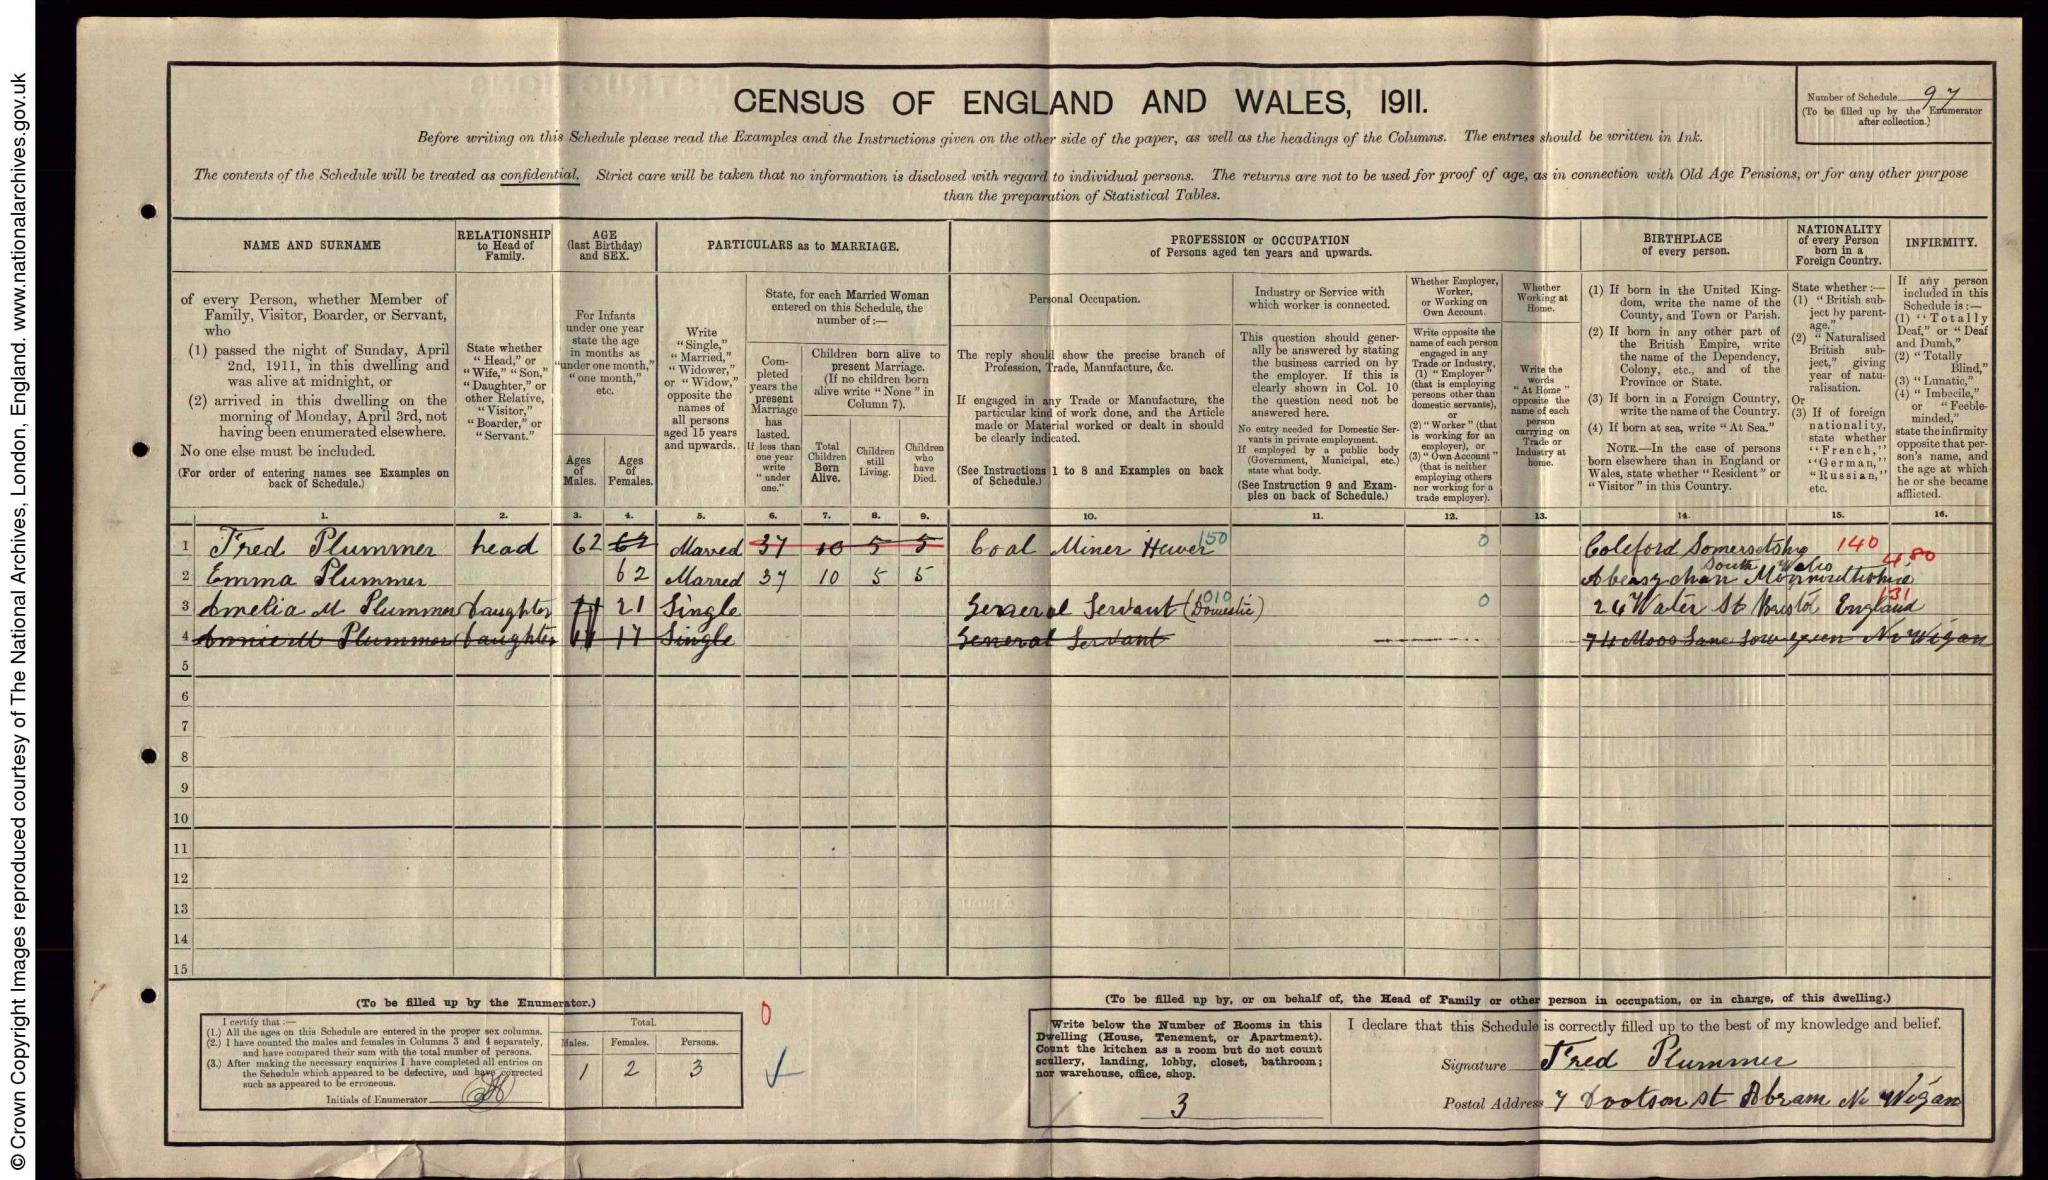 © Crown Copyright Images reproduced courtesy of The National Archives, London, England. www.nationalarchives.gov.uk
CENSUS OF ENGLAND AND WALES, 1911.
Number of Schedule 97
(To be filled up by the Enumerator
after collection.)
Before writing on this Schedule please read the Examples and the Instructions given on the other side of the paper, as well as the headings of the Columns. The entries should be written in Ink.
The contents of the Schedule will be treated as confidential. Strict care will be taken that no information is disclosed with regard to individual persons. The returns are not to be used for proof of age, as in connection with Old Age Pensions, or for any other purpose
than the preparation of Statistical Tables.
NAME AND SURNAME
of every Person, whether Member of
Family, Visitor, Boarder, or Servant,
who
(1) passed the night of Sunday, April
2nd, 1911, in this dwelling and
was alive at midnight, or
(2) arrived in this dwelling on the
morning of Monday, April 3rd, not
having been enumerated elsewhere.
No one else must be included.
(For order of entering names see Examples on
back of Schedule.)
RELATIONSHIP
to Head of
Family.
State whether
"Head," or
"Wife," "Son,"
"Daughter," or
other Relative,
"Visitor,"
"Boarder," or
"Servant."
AGE
(last Birthday)
and SEX.
For Infants
under one year
state the age
in months as
"under one month,"
"one month,"
etc.
Ages
of
Males.
Ages
of
Females.
PARTICULARS as to MARRIAGE.
Write
"Single,"
"Married,"
"Widower,"
or "Widow,"
opposite the
names of
all persons
aged 15 years
and upwards.
State, for each Married Woman
entered on this Schedule, the
number of:—
Com-
pleted
years the
present
Marriage
has
lasted.
If less than
one year
write
"under
one."
Children born alive to
present Marriage.
(If no children born
alive write "None" in
Column 7).
Total
Children
Born
Alive.
Children
still
Living.
Children
who
have
Died.
PROFESSION or OCCUPATION
of Persons aged ten years and upwards.
Personal Occupation.
The reply should show the precise branch of
Profession, Trade, Manufacture, &c.
If engaged in any Trade or Manufacture, the
particular kind of work done, and the Article
made or Material worked or dealt in should
be clearly indicated.
(See Instructions 1 to 8 and Examples on back
of Schedule.)
Industry or Service with
which worker is connected.
This question should gener-
ally be answered by stating
the business carried on by
the employer. If this is
clearly shown in Col. 10
the question need not be
answered here.
No entry needed for Domestic Ser-
vants in private employment.
If employed by a public body
(Government, Municipal, etc.)
state what body.
(See Instruction 9 and Exam-
ples on back of Schedule.)
Whether Employer,
Worker,
or Working on
Own Account.
Write opposite the
name of each person
engaged in any
Trade or Industry,
(1) "Employer"
(that is employing
persons other than
domestic servants),
or
(2) "Worker" (that
is working for an
employer), or
(3) "Own Account"
(that is neither
employing others
nor working for a
trade employer).
Whether
Working at
Home.
Write the
words
"At Home"
opposite the
name of each
person
carrying on
Trade or
Industry at
home.
BIRTHPLACE
of every person.
(1) If born in the United King-
dom, write the name of the
County, and Town or Parish.
(2) If born in any other part of
the British Empire, write
the name of the Dependency,
Colony, etc., and of the
Province or State.
(3) If born in a Foreign Country,
write the name of the Country.
(4) If born at sea, write "At Sea."
NOTE.—In the case of persons
born elsewhere than in England or
Wales, state whether "Resident" or
"Visitor" in this Country.
NATIONALITY
of every Person
born in a
Foreign Country.
State whether:—
(1) "British sub-
ject by parent-
age."
(2) "Naturalised
British sub-
ject," giving
year of natu-
ralisation.
Or
(3) If of foreign
nationality,
state whether
"French,"
"German,"
"Russian,"
etc.
INFIRMITY.
If any person
included in this
Schedule is:—
(1) "Totally
Deaf," or "Deaf
and Dumb,"
(2) "Totally
Blind,"
(3) "Lunatic,"
(4) "Imbecile,"
or "Feeble-
minded,"
state the infirmity
opposite that per-
son's name, and
the age at which
he or she became
afflicted.
1. 2. 3. 4. 5. 6. 7. 8. 9. 10. 11. 12. 13. 14. 15. 16.
1 Fred Plummer head 62 62 Marred 37 10 5 5 Coal Miner Hewer 150 0 Coleford Somersetshire 140
2 Emma Plummer 62 Marred 37 10 5 5 South Wales 480
3 Amelia M Plummer Daughter 21 Single General Servant (Domestic) 010 0 26 Water St Bristol England 131
4 Annie M Plummer Daughter 17 Single General Servant 74 Moss Lane Lowgreen Nr Wigan
5
6
7
8
9
10
11
12
13
14
15
(To be filled up by the Enumerator.)
I certify that:—
(1.) All the ages on this Schedule are entered in the proper sex columns.
(2.) I have counted the males and females in Columns 3 and 4 separately,
and have compared their sum with the total number of persons.
(3.) After making the necessary enquiries I have completed all entries on
the Schedule which appeared to be defective, and have corrected
such as appeared to be erroneous.
Initials of Enumerator
Total.
Males. Females. Persons.
1 2 3
0
(To be filled up by, or on behalf of, the Head of Family or other person in occupation, or in charge, of this dwelling.)
Write below the Number of Rooms in this
Dwelling (House, Tenement, or Apartment).
Count the kitchen as a room but do not count
scullery, landing, lobby, closet, bathroom;
nor warehouse, office, shop.
3
I declare that this Schedule is correctly filled up to the best of my knowledge and belief.
Signature Fred Plummer
Postal Address 7 Dootson st Abram Nr Wigan